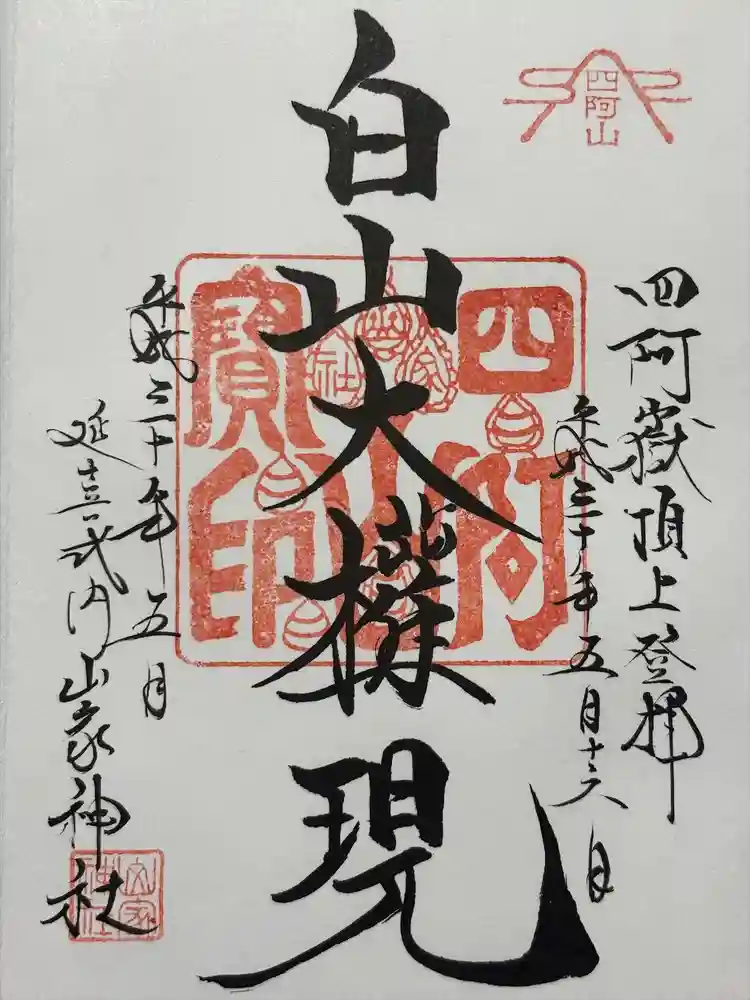 四阿山
四阿嶽頂上登拝
平成三十年五月十六日
白山大権現
四阿山寶印
平成三十年五月
延喜式内山家神社
山家神社